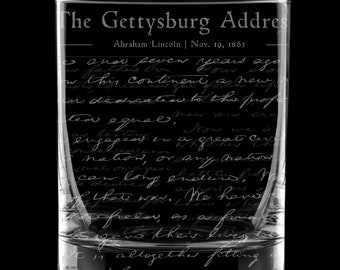 The Gettysburg Addres
Abraham Lincoln | Nov. 19, 1863
and seven years ago
this continent a new
or dedicated to the prop
equal.
engaged in a great civ
nation, or any nation
can long endure. We
that war. We have
a final
their lives
is altogether fitting a